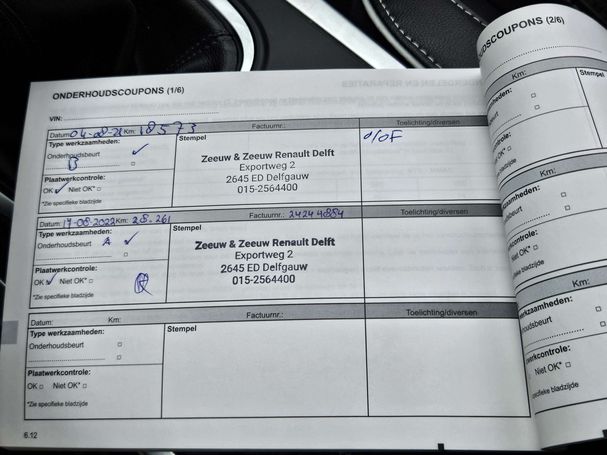 ONDERHOUDSCOUPONS (1/6)
VIN:
Datum: 04-08-21 Km: 18573 Factuurnr.: Toelichting/diversen
Type werkzaamheden: Stempel o/oF
Onderhoudsbeurt ✓
B
Zeeuw & Zeeuw Renault Delft
Exportweg 2
2645 ED Delfgauw
015-2564400
Plaatwerkcontrole:
OK ✓ Niet OK* □
*Zie specifieke bladzijde
Datum: 17-08-2022 Km: 28.261 Factuurnr.: 24249884 Toelichting/diversen
Type werkzaamheden: Stempel
Onderhoudsbeurt A ✓
Zeeuw & Zeeuw Renault Delft
Exportweg 2
2645 ED Delfgauw
015-2564400
Plaatwerkcontrole:
OK ✓ Niet OK* □
*Zie specifieke bladzijde
Datum: Km: Factuurnr.: Toelichting/diversen
Type werkzaamheden: Stempel
Onderhoudsbeurt □
□
Plaatwerkcontrole:
OK □ Niet OK* □
*Zie specifieke bladzijde
6.12
DSCOUPONS (2/6)
Km:
Stempel
mheden:
sbeurt
ontrole:
Niet OK* □
bladzijde
Km:
kzaamheden:
dsbeurt
ontrole:
Niet OK* □
specifieke bladzijde
Km:
kzaamheden:
oudsbeurt
werkcontrole:
Niet OK* □
specifieke bladzijde